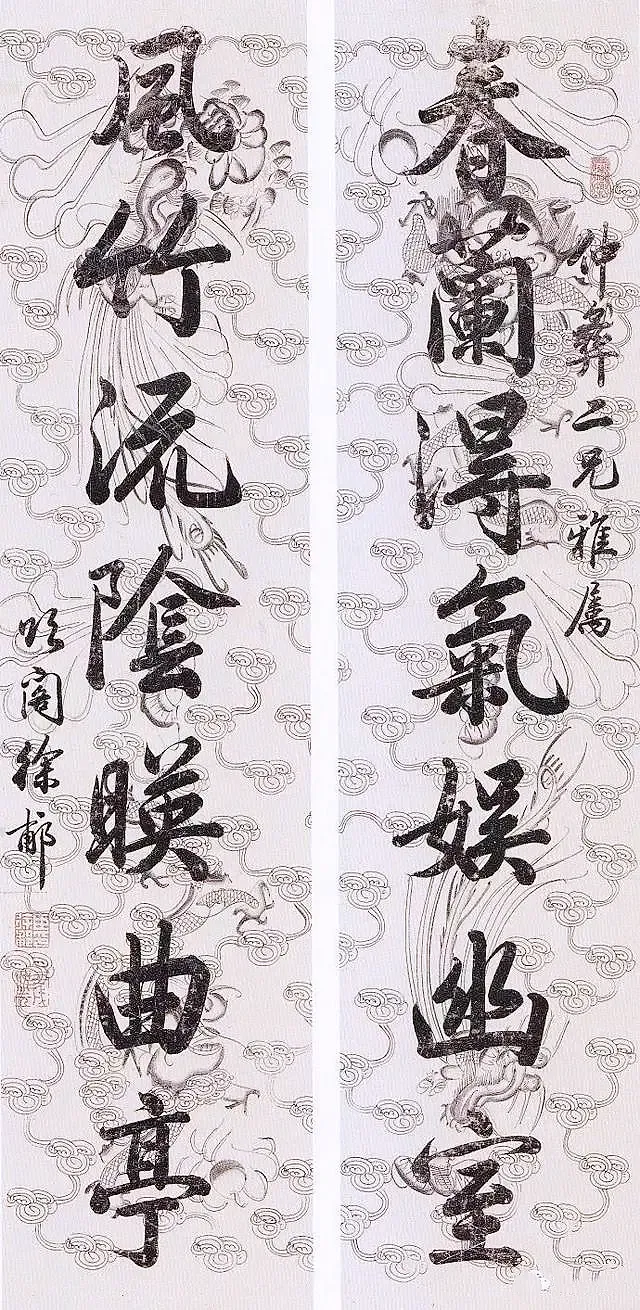 仲彝二兄雅属
春蘭得氣娛幽室
風竹流陰暎曲亭
頌閣徐郙